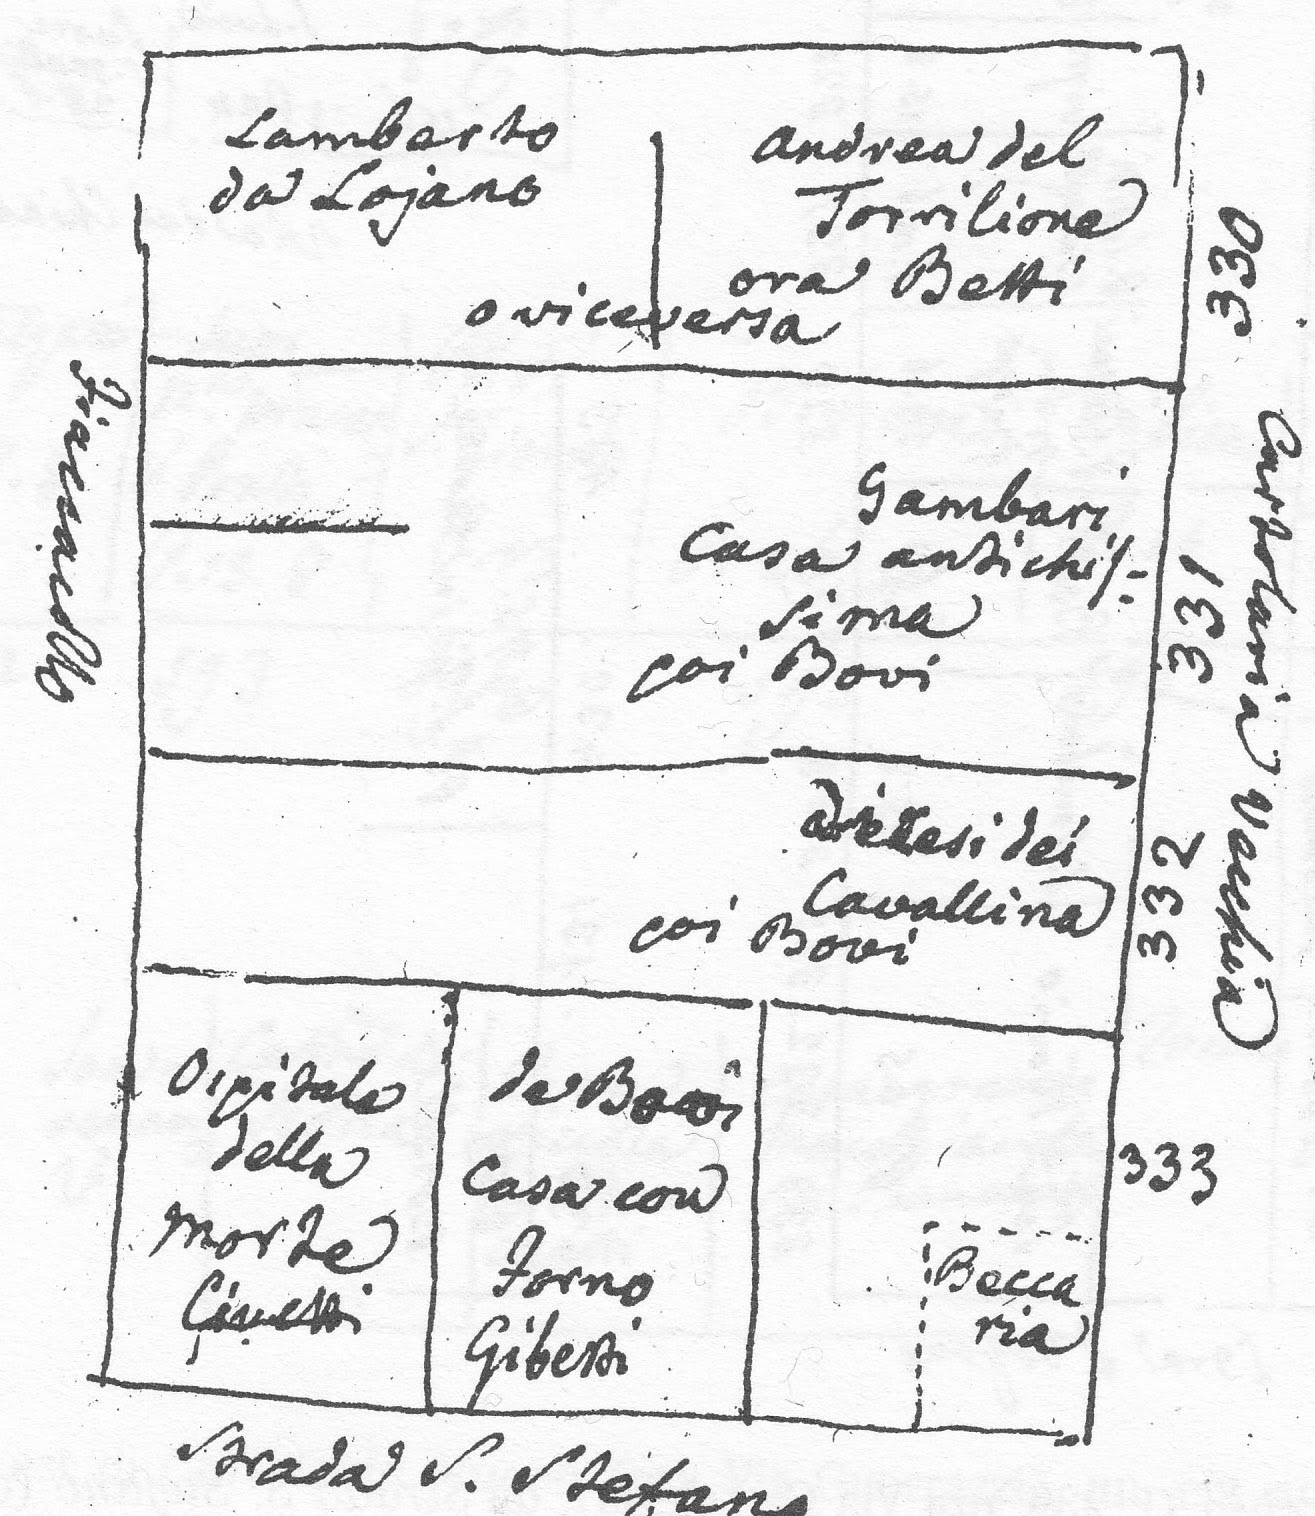 Lamberto
da Lojano
Andrea del
Torrilione
ora Betti
o viceversa
330
Fiaccacollo
Gambari
Casa antichis-
sima
poi Bovi
331
Cartolaria Vecchia
dei
Cavallina
poi Bovi
332
Ospitale
della
Morte
de Bovi
Casa con
Forno
Giberti
333
Becca
ria
Strada S. Stefano